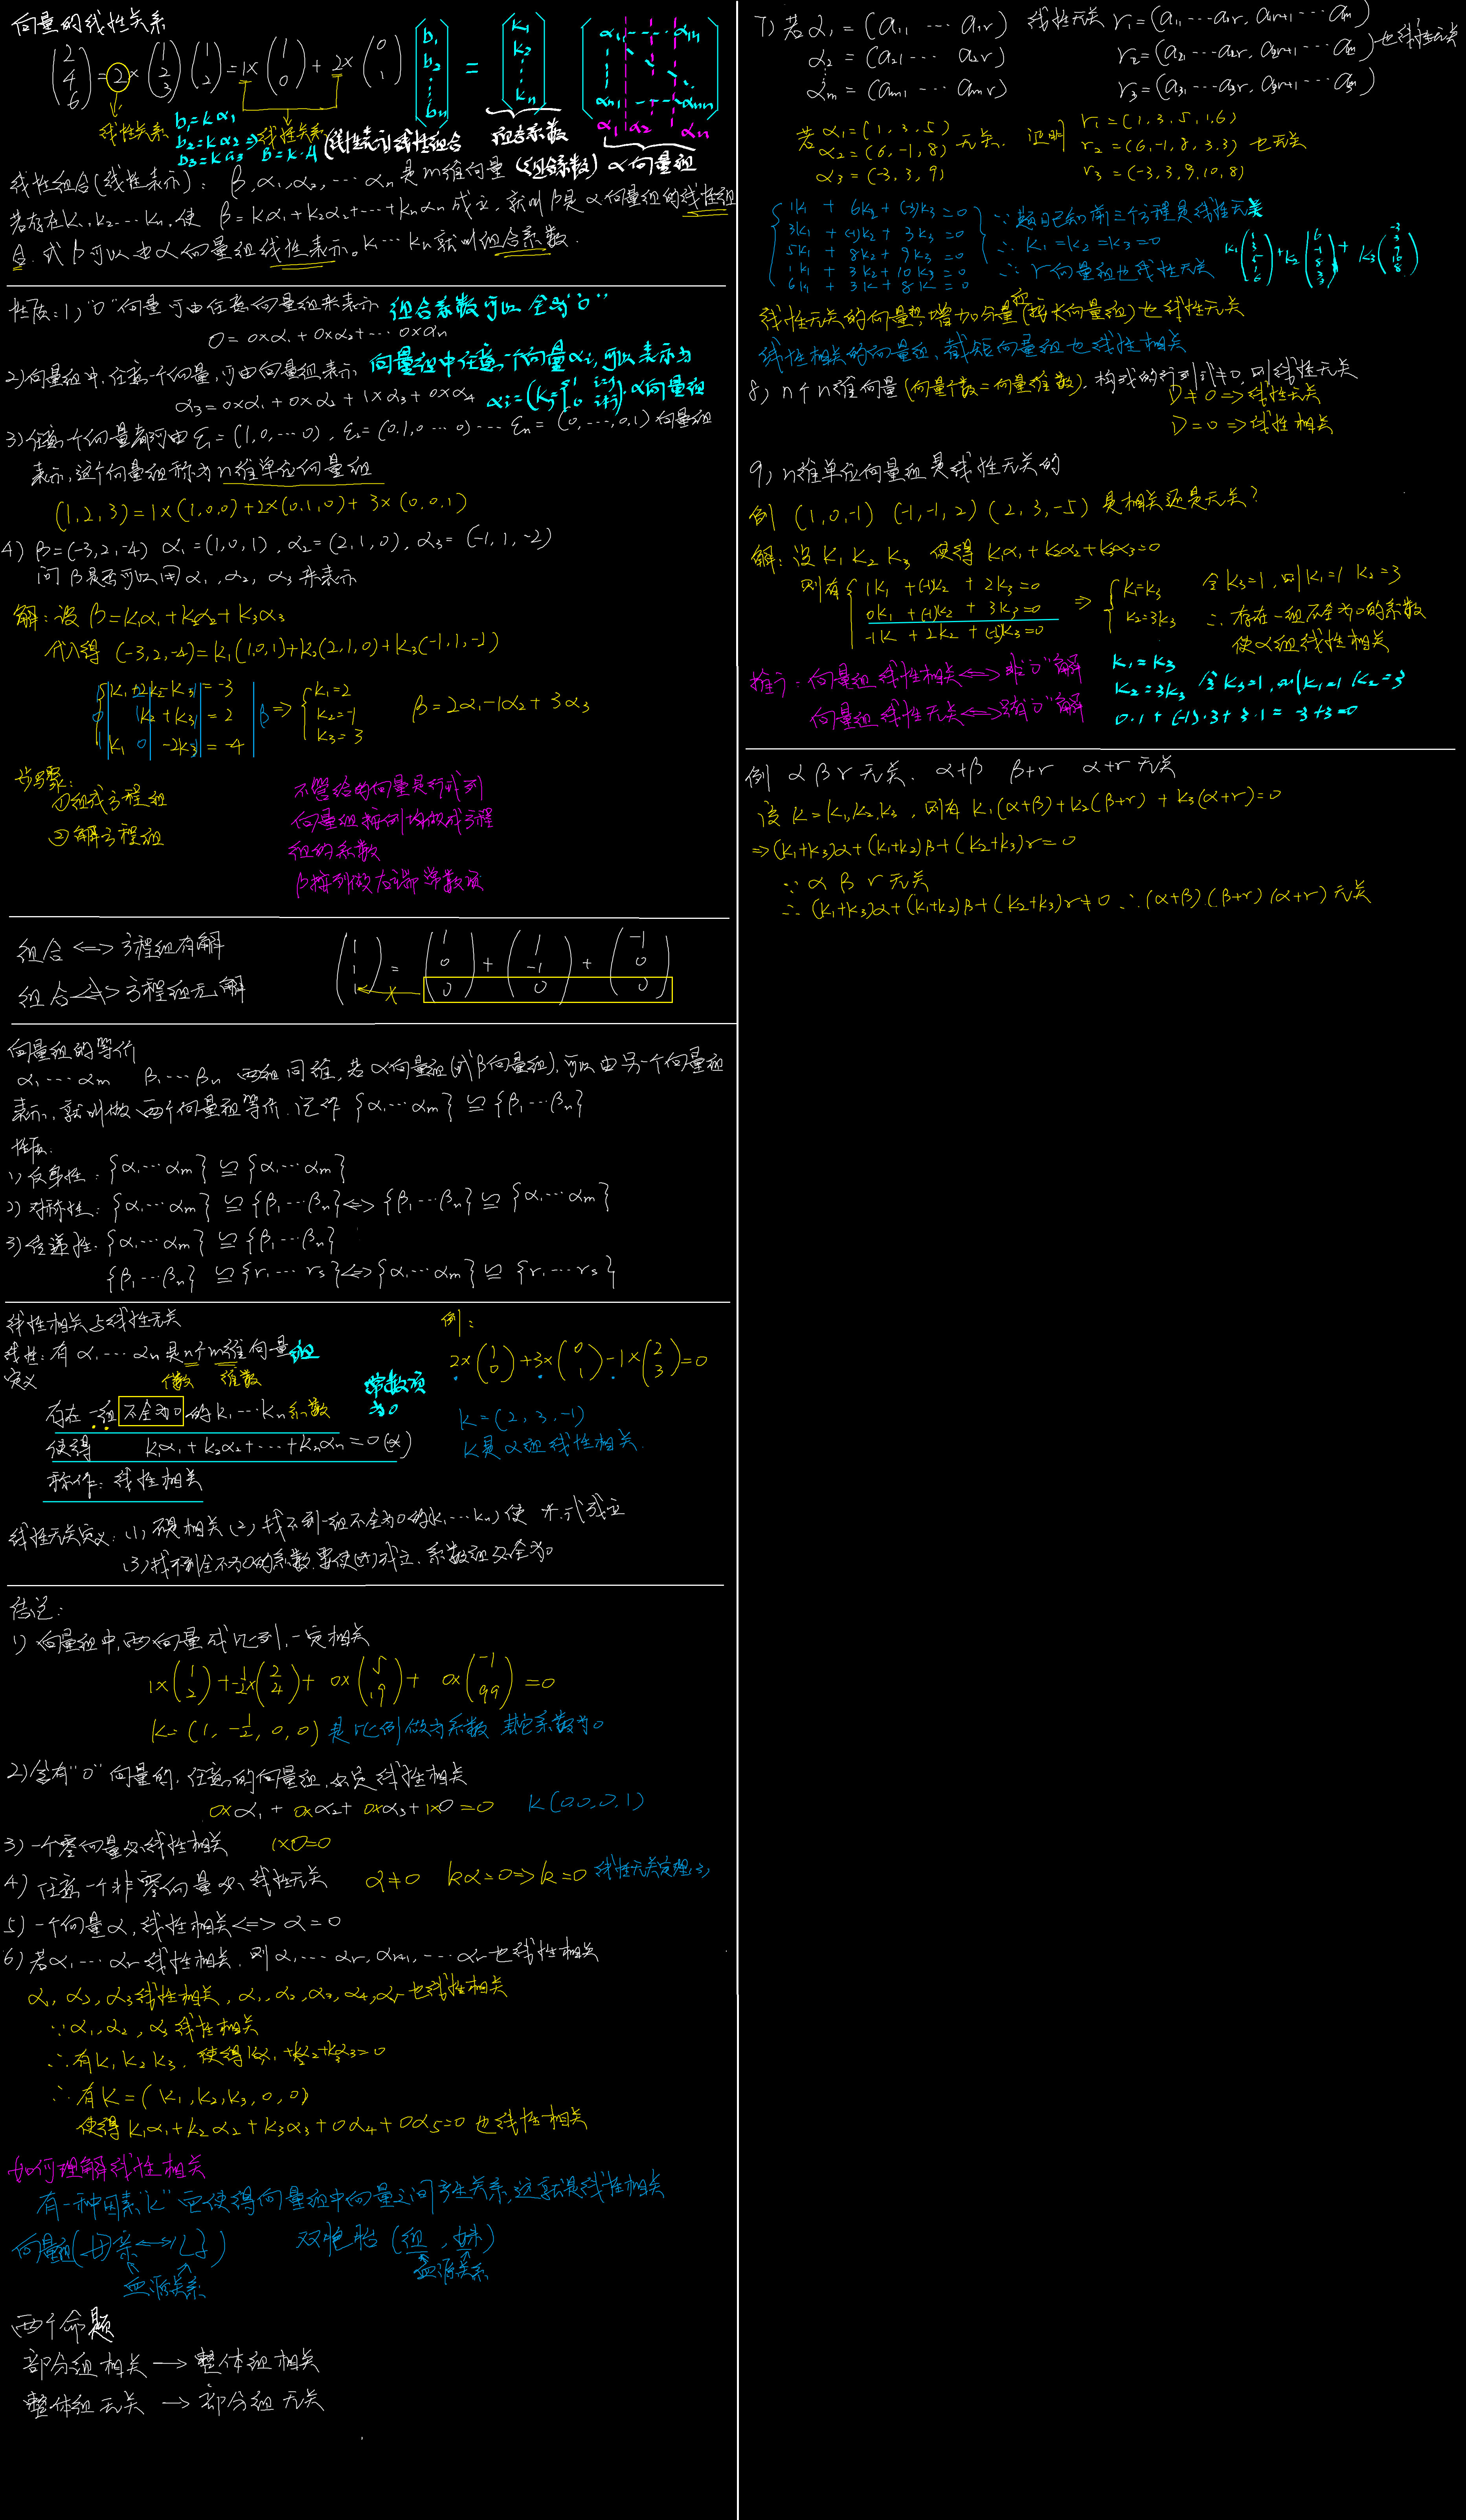 向量的线性关系
(2 4 6) = 2 × (1 2 3) (1 2) = 1× (1 0) + 2× (0 1) (b₁ b₂ ⋮ bn) = (k₁ k₂ ⋮ kn) (α₁₁ ---- α₁n ⋮ αn₁ ---- αnn)
线性关系 b₁=kα₁ b₂=kα₂ b₃=kα₃ ⇒ 线性关系 β=k·A (线性表示) 线性组合 组合系数 (组合系数) α₁ α₂ αn α向量组
线性组合(线性表示): β,α₁,α₂,…αn是m维向量
若存在k₁,k₂…kn,使 β=kα₁+k₂α₂+…+knαn 成立,就叫β是α向量组的线性组
合.或β可以由α向量组线性表示。k₁…kn就叫组合系数.
性质:1)"0"向量可由任意向量组来表示 组合系数可以全为"0"
0=0×α₁+0×α₂+…0×αn
2)向量组中,任意一个向量,可由向量组表示, 向量组中任意一个向量αi,可以表示为
α₃=0×α₁+0×α₂+1×α₃+0×α₄ αi=(kj={1 i=j 0 i≠j)·α向量组
3)任意一个向量都可由ε₁=(1,0,…0),ε₂=(0,1,0…0)…εn=(0,…,0,1)向量组
表示,这个向量组称为n维单位向量组
(1,2,3)=1×(1,0,0)+2×(0,1,0)+3×(0,0,1)
4) β=(-3,2,-4) α₁=(1,0,1),α₂=(2,1,0),α₃=(-1,1,-2)
问β是否可以用α₁,α₂,α₃来表示
解:设β=k₁α₁+k₂α₂+k₃α₃
代入得 (-3,2,-4)=k₁(1,0,1)+k₂(2,1,0)+k₃(-1,1,-2)
{k₁+2k₂-k₃=-3
0 k₂+k₃=2 β ⇒ {k₁=2 k₂=-1 k₃=3 β=2α₁-1α₂+3α₃
k₁ 0 -2k₃=-4
步骤:
①组成方程组
②解方程组
不管给的向量是行或列
向量组按列均做成方程
组的系数
β按列做右端常数项
组合⇔方程组有解
组合⇎方程组无解
(1 1 1) = (1 0 0) + (1 -1 0) + (-1 0 0)
向量组的等价
α₁…αm β₁…βn 两组同维,若α向量组(或β向量组),可以由另一个向量组
表示,就叫做两个向量组等价.记作 {α₁…αm}≌{β₁…βn}
性质.
1)反身性:{α₁…αm}≌{α₁…αm}
2)对称性:{α₁…αm}≌{β₁…βn}⇔{β₁…βn}≌{α₁…αm}
3)传递性.{α₁…αm}≌{β₁…βn}
{β₁…βn}≌{r₁…rs}⇔{α₁…αm}≌{r₁…rs}
线性相关与线性无关
线性:有α₁…αn是n个m维向量组
定义 个数 维数 常数项为0
存在一组不全为0的k₁…kn系数
使得 k₁α₁+k₂α₂+…+knαn=0(※)
称作:线性相关
例:
2×(1 0)+3×(0 1)-1×(2 3)=0
k=(2,3,-1)
k是α组线性相关.
线性无关定义:(1)不是相关(2)找不到一组不全为0的(k₁…kn)使※式成立
(3)找不到全不为0的系数,要使(※)成立,系数组必全为0
结论:
1)向量组中,两向量成比列,一定相关
1×(1 2)+-½×(2 4)+0×(5 19)+0×(-1 99)=0
k=(1,-½,0,0)是比例做为系数 其它系数为0
2)含有"0"向量的,任意的向量组,必定线性相关
0×α₁+0×α₂+0×α₃+1×0=0 k(0,0,0,1)
3)一个零向量必线性相关 1×0=0
4)任意一个非零向量必线性无关 α≠0 kα=0⇒k=0 线性无关定理(3)
5)一个向量α,线性相关⇔α=0
6)若α₁…αr线性相关,则α₁…αr,αr+1,…αr也线性相关
α₁,α₂,α₃线性相关,α₁,α₂,α₃,α₄,α₅也线性相关
∵α₁,α₂,α₃线性相关
∴有k₁k₂k₃,使得k₁α₁+k₂α₂+k₃α₃=0
∴有k=(k₁,k₂,k₃,0,0)
使得k₁α₁+k₂α₂+k₃α₃+0α₄+0α₅=0也线性相关
如何理解线性相关
有一种因素"k"它使得向量组中向量之间产生关系,这就是线性相关
向量组(母亲⇔儿子) 双胞胎(姐,妹)
血源关系 血源关系
两个命题
部分组相关→整体组相关
整体组无关→部分组无关
7)若α₁=(a₁₁…a₁r) 线性无关 r₁=(a₁₁…a₁r,a₁r+1…a₁n)
α₂=(a₂₁…a₂r) r₂=(a₂₁…a₂r,a₂r+1…a₂n)也线性无关
αm=(am₁…amr) r₃=(a₃₁…a₃r,a₃r+1…a₃n)
若α₁=(1,3,5) α₂=(6,-1,8) α₃=(-3,3,9) 无关. 证明 r₁=(1,3,5,1,6) r₂=(6,-1,8,3,3) r₃=(-3,3,9,10,8) 也无关
{1k₁+6k₂+(-3)k₃=0
3k₁+(-1)k₂+3k₃=0
5k₁+8k₂+9k₃=0
1k₁+3k₂+10k₃=0
6k₁+3k+8k=0
∵题目已知前三个方程是线性无关
∴k₁=k₂=k₃=0
∴r向量组也线性无关
k₁(1 3 5 1 6)+k₂(6 -1 8 3 3)+k₃(-3 3 9 10 8)
线性无关的向量组,增加分量(接长向量组)也线性无关
线性相关的向量组,截短向量组也线性相关
8)n个n维向量(向量个数=向量维数),构成的行列式≠0,则线性无关
D≠0⇒线性无关
D=0⇒线性相关
9)n维单位向量组是线性无关的
例 (1,0,-1) (-1,-1,2) (2,3,-5)是相关还是无关?
解:设k₁k₂k₃ 使得k₁α₁+k₂α₂+k₃α₃=0
则有{1k₁+(-1)k₂+2k₃=0
0k₁+(-1)k₂+3k₃=0
-1k+2k₂+(-5)k₃=0
⇒{k₁=k₃ k₂=3k₃
令k₃=1,则k₁=1 k₂=3
∴存在一组不全为0的系数
使α组线性相关
推广:向量组线性相关⇔非"0"解
向量组线性无关⇔只有"0"解
k₁=k₃
k₂=3k₃ 令k₃=1,则k₁=1 k₂=3
0·1+(-1)·3+3·1=-3+3=0
例 αβr无关. α+β β+r α+r无关
设k=k₁,k₂,k₃,则有k₁(α+β)+k₂(β+r)+k₃(α+r)=0
⇒(k₁+k₃)α+(k₁+k₂)β+(k₂+k₃)r=0
∵αβr无关
∴(k₁+k₃)α+(k₁+k₂)β+(k₂+k₃)r≠0 ∴(α+β)(β+r)(α+r)无关